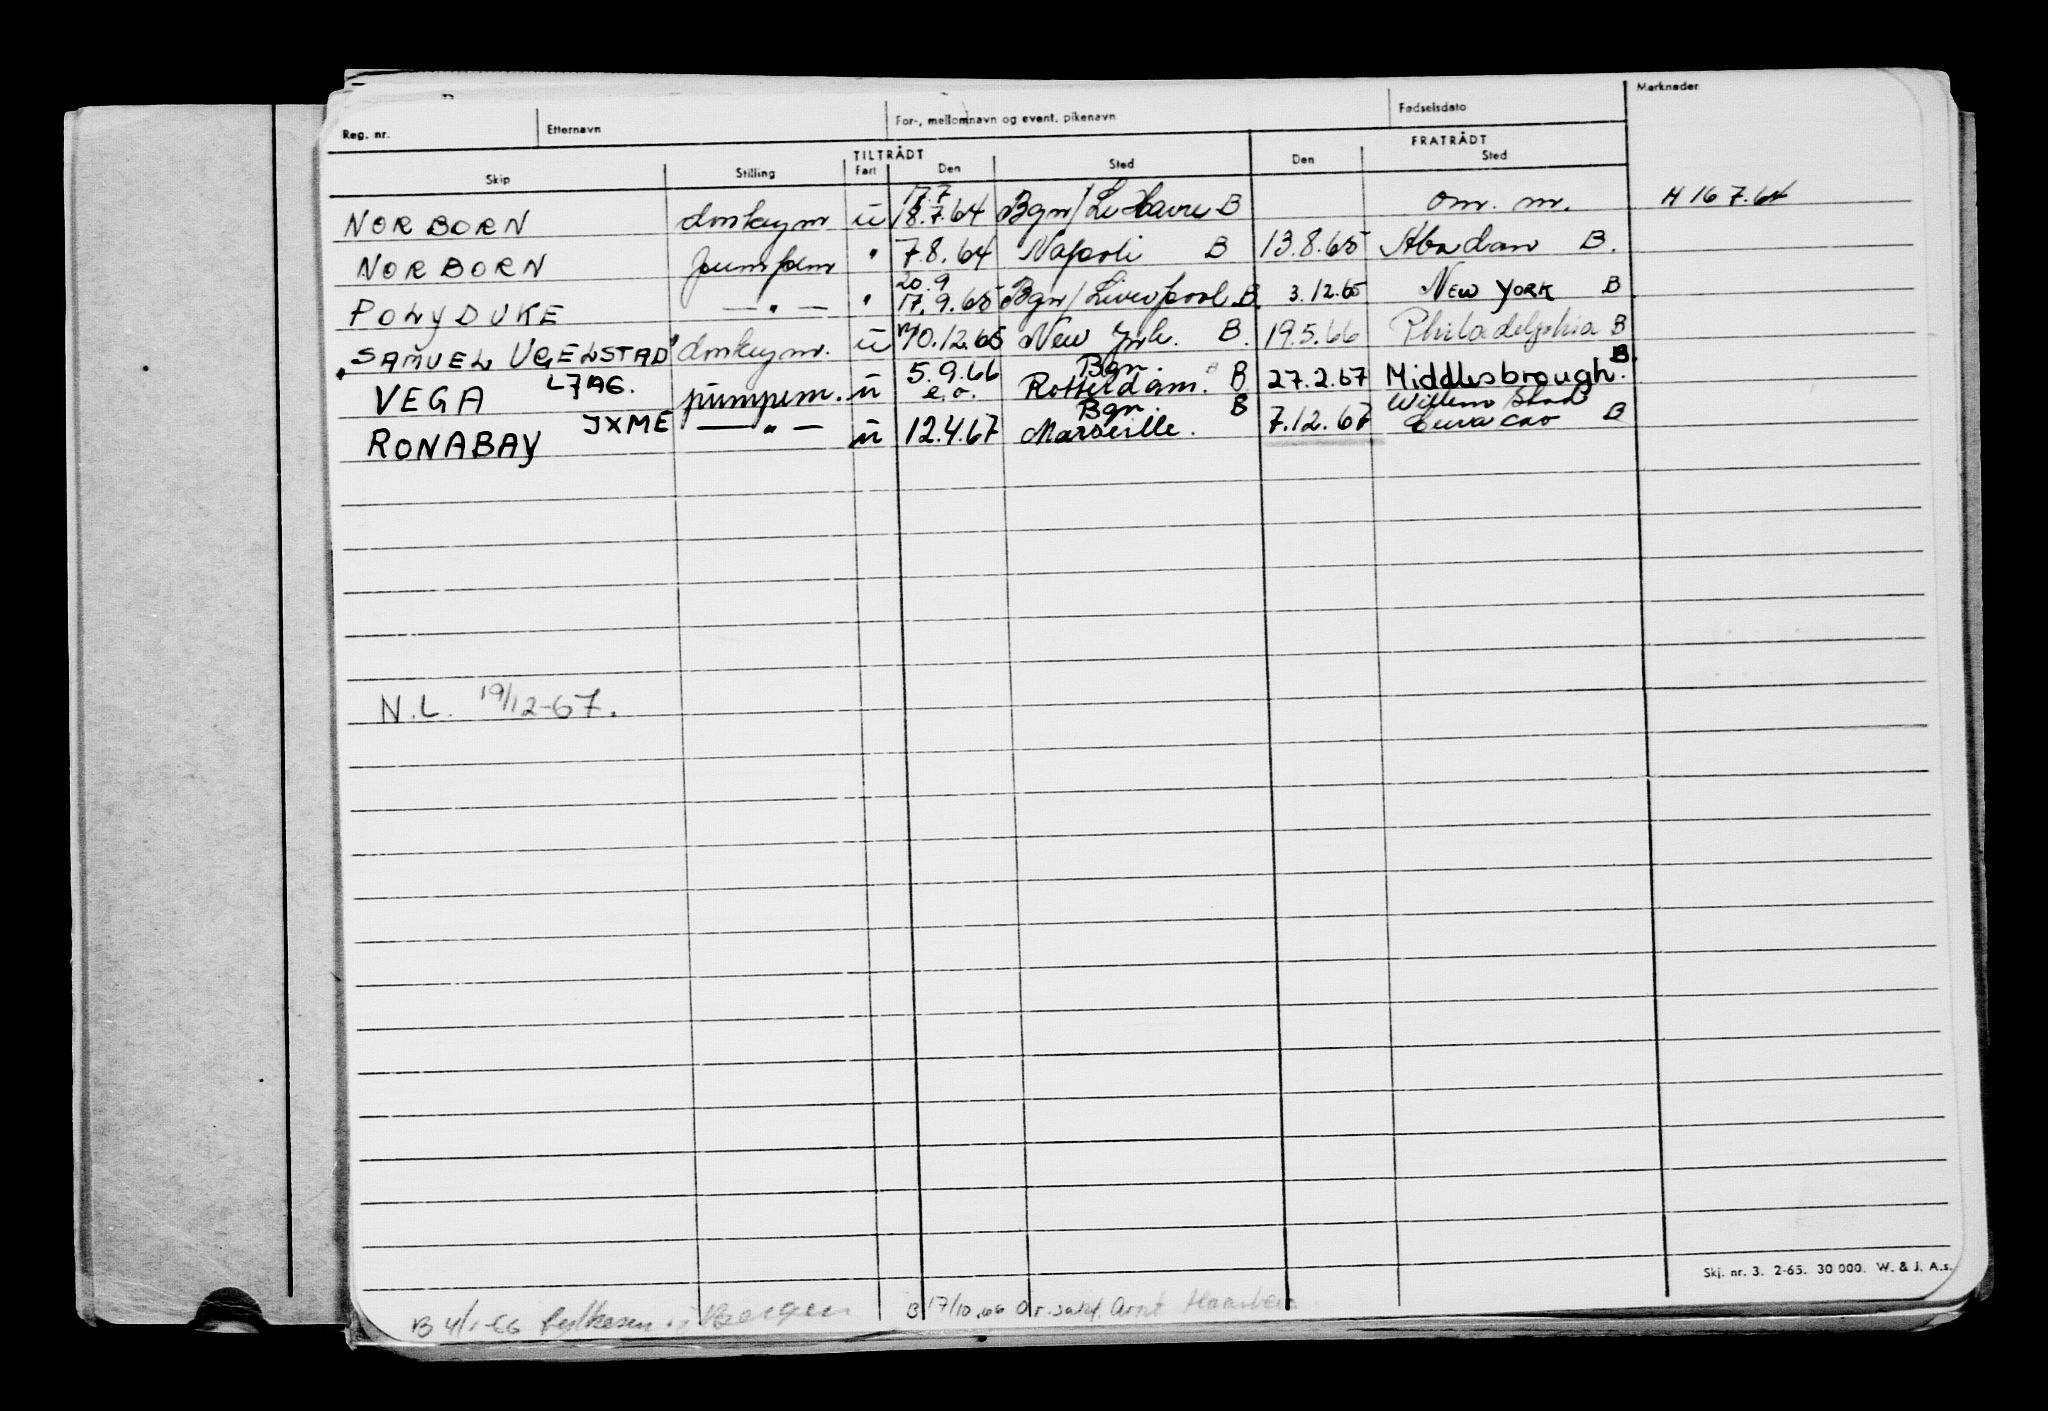 Reg. nr. Etternavn For-, mellomnavn og event. pikenavn Fødselsdato Merknader
TILTRÅDT FRATRÅDT
Skip Stilling Fart Den Sted Den Sted
17.7
NORBORN donkeym ū 18.7.64 Bgn/Le Havre B om. m. H 16 7.64
NORBORN pumpem " 7.8.64 Napoli B 13.8.65 Abadan B.
20.9
POLYDUKE — " — " 17.9.65 Bgn/Liverpool B. 3.12.65 NEW YORK B
"SAMUEL UGELSTAD" donkeym. ū 10.12.65 New York. B. 19.5.66 Philadelphia B
5.9.66 Bgn. B.
VEGA LJAG. pumpem. ū e.o. Rotterdam. B 27.2.67 Middlesbrough.
Bgn B Willemstad
RONABAY JXME — " — ū 12.4.67 Marseille. 7.12.67 Curacao B
N.L. 19/12-67.
Skj. nr. 3. 2-65. 30 000. W. & J. A.s.
B 4/1-66 Bergen B 17/10.66 Arnt